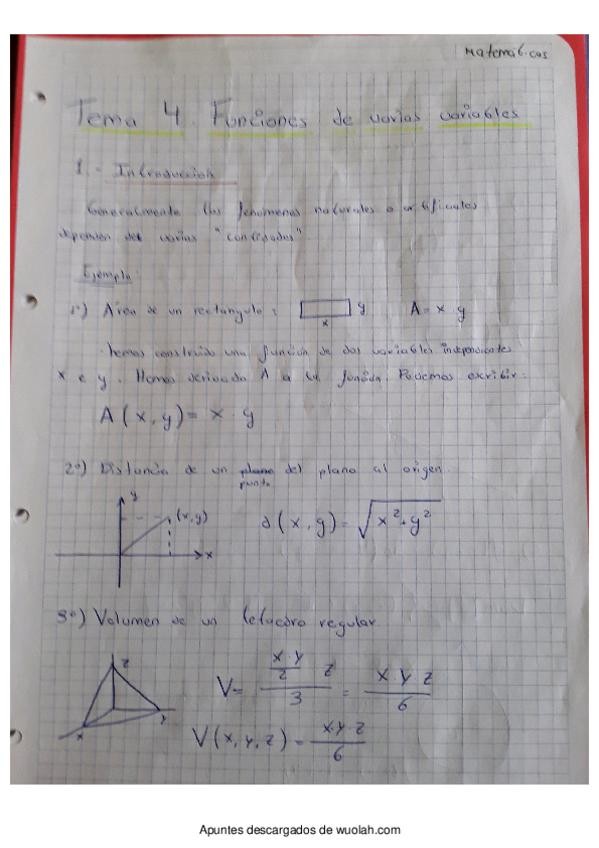 Matemáticas
Tema 4. Funciones de varias variables
1.- Introducción
Generalmente los fenómenos naturales o artificiales
dependen de varias "cantidades"
Ejemplo:
1º) Área de un rectangulo: y A = x · y
x
hemos construido una función de dos variables independientes
x e y. Hemos A a la función. Podemos escribir:
A(x,y) = x · y
2º) Distancia de un plano del plano al origen.
punto
y
(x,y) d(x,y) = √x²+y²
x
3º) Volumen de un tetraedro regular
z V = (x·y/2 z)/3 = x y z/6
x y V(x,y,z) = x·y·z/6
Apuntes descargados de wuolah.com